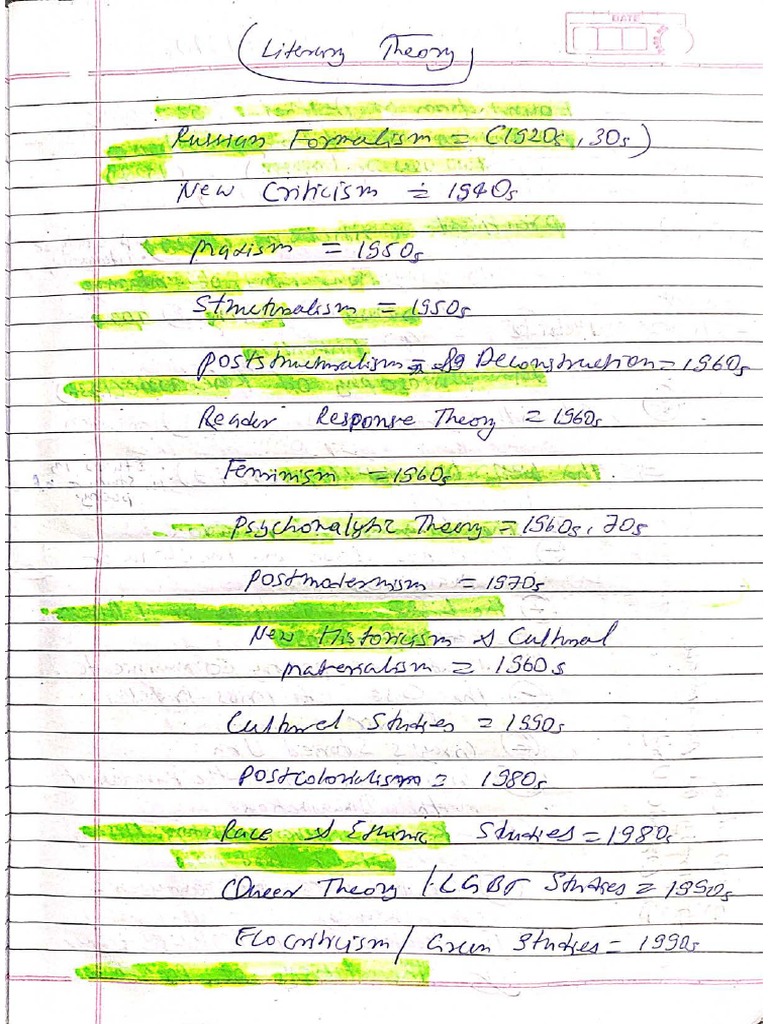 (Literary Theory)
DATE
Russian Formalism = (1920s, 30s)
New Criticism = 1940s
Marxism = 1950s
Structuralism = 1950s
Poststructuralism = Deconstruction = 1960s
Reader Response Theory = 1960s
Feminism = 1960s
Psychonalytic Theory = 1960s, 70s
Postmodernism = 1970s
New Historicism & Cultural
materialism = 1960s
Cultural Studies = 1990s
Postcolonialism = 1980s
Race & Ethnic Studies = 1980s
Queer Theory / LGBT Studies = 1990s
Ecocriticism / Green Studies = 1990s